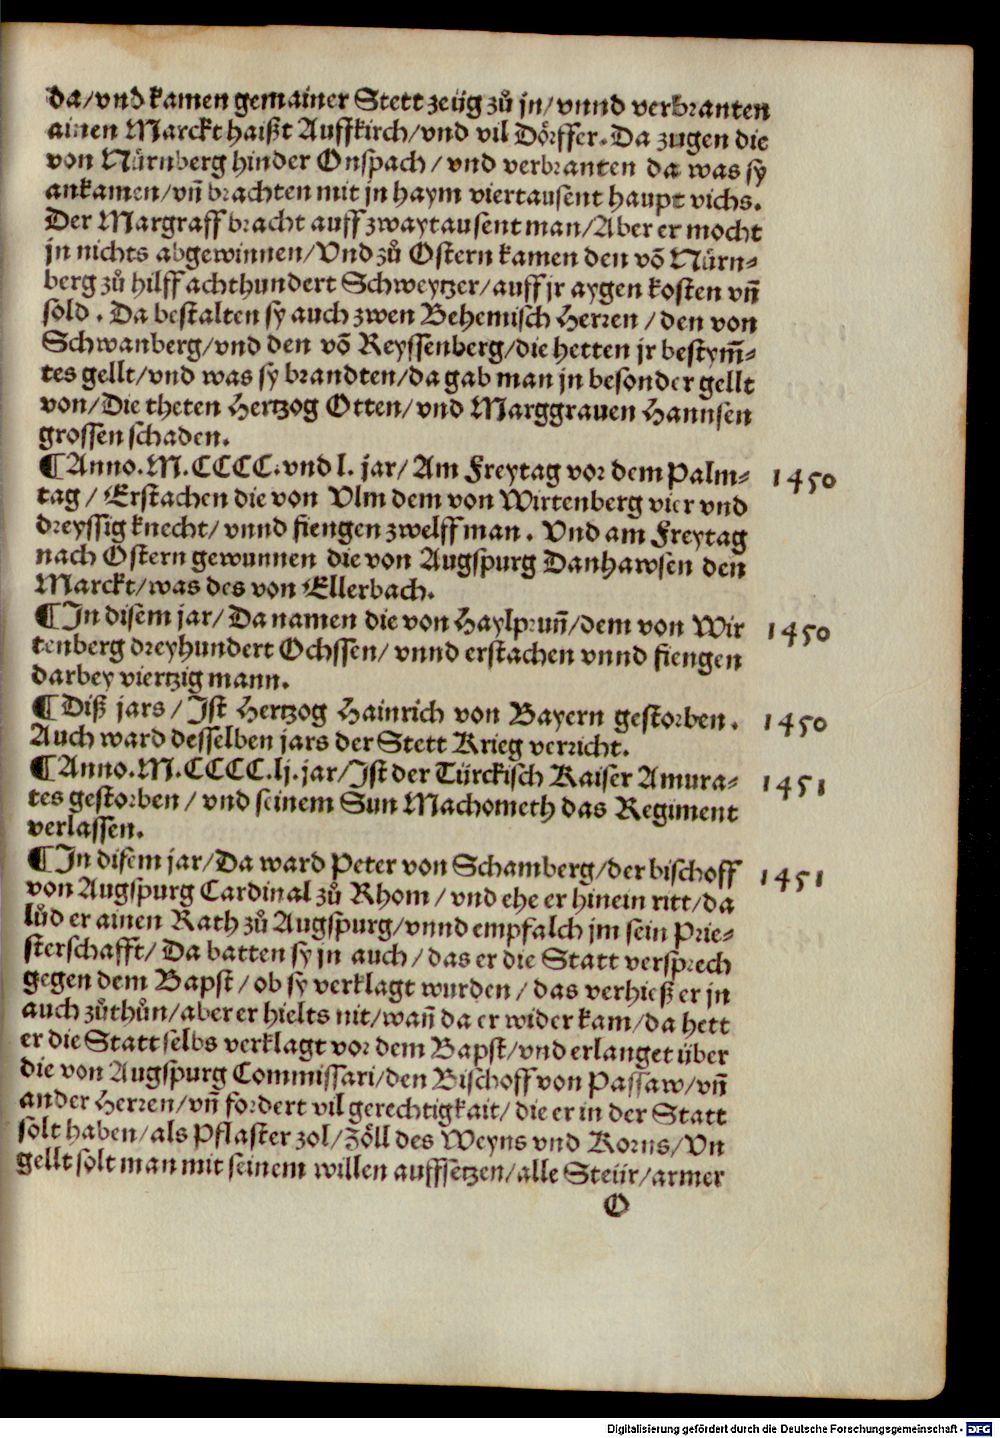 da/vnd kamen gemainer Stett zeüg zů jn/vnnd verbranten
ainen Marckt haißt Auffkirch/vnd vil Dörffer. Da zugen die
von Nürnberg hinder Onspach/vnd verbranten da was sy
ankamen/vñ brachten mit jn haym viertausent haupt vichs.
Der Margraff bracht auff zwaytausent man/Aber er mocht
jn nichts abgewinnen/Vnd zů Ostern kamen den võ Nürn-
berg zů hilff achthundert Schweytzer/auff jr aygen kosten vñ
sold. Da bestalten sy auch zwen Behemisch Herren/den von
Schwanberg/vnd den võ Reyssenberg/die hetten jr bestym̃-
tes gellt/vnd was sy brandten/da gab man jn besonder gellt
von/Die theten Hertzog Otten/vnd Marggrauen Hannsen
grossen schaden.
¶ Anno.M.CCCC.vnd l. jar/Am Freytag vor dem Palm- 1450
tag/Erstachen die von Vlm dem von Wirtenberg vier vnd
dreyssig knecht/vnnd fiengen zwelff man. Vnd am Freytag
nach Ostern gewunnen die von Augspurg Danhawsen den
Marckt/was des von Ellerbach.
¶ In disem jar/Da namen die von Haylprunñ/dem von Wir 1450
tenberg dreyhundert Ochssen/vnnd erstachen vnnd fiengen
darbey viertzig mann.
¶ Diß jars/Ist Hertzog Hainrich von Bayern gestorben. 1450
Auch ward desselben jars der Stett Krieg verricht.
¶ Anno.M.CCCC.lj.jar/Ist der Türckisch Kaiser Amura- 1451
tes gestorben/vnd seinem Sun Machometh das Regiment
verlassen.
¶ In disem jar/Da ward Peter von Schamberg/der bischoff 1451
von Augspurg Cardinal zů Rhom/vnd ehe er hinein ritt/da
lůd er ainen Rath zů Augspurg/vnnd empfalch jm sein Prie-
sterschafft/Da batten sy jn auch/das er die Statt versprech
gegen dem Bapst/ob sy verklagt wurden/das verhieß er jn
auch zůthůn/aber er hielts nit/wañ da er wider kam/da hett
er die Statt selbs verklagt vor dem Bapst/vnd erlanget über
die von Augspurg Commissari/den Bischoff von Passaw/vñ
ander Herren/vñ fordert vil gerechtigkait/die er in der Statt
solt haben/als Pflaster zol/Zöll des Weyns vnd Korns/Vn
gellt solt man mit seinem willen auffsetzen/alle Steür/armer
O
Digitalisierung gefördert durch die Deutsche Forschungsgemeinschaft - DFG